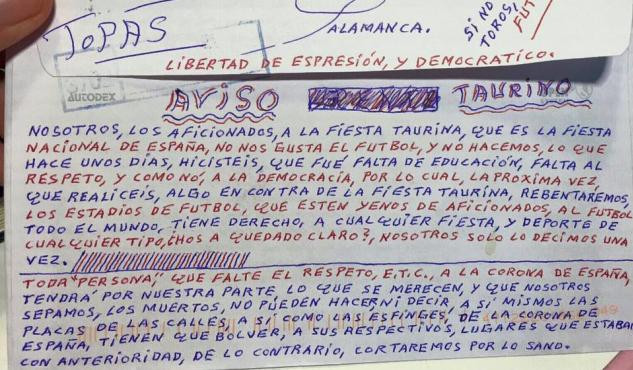 TOPAS
SALAMANCA.
SI NO
TOROS,
FUT
LIBERTAD DE ESPRESIÓN, Y DEMOCRATICO.
AUTODEX
AVISO TAURINO
NOSOTROS, LOS AFICIONADOS, A LA FIESTA TAURINA, QUE ES LA FIESTA
NACIONAL DE ESPAÑA, NO NOS GUSTA EL FUTBOL, Y NO HACEMOS, LO QUE
HACE UNOS DIAS, HICISTEIS, QUE FUÉ FALTA DE EDUCACIÓN, FALTA AL
RESPETO, Y COMO NO, A LA DEMOCRACIA, POR LO CUAL, LA PROXIMA VEZ,
QUE REALICEIS, ALGO EN CONTRA DE LA FIESTA TAURINA, REBENTAREMOS,
LOS ESTADIOS DE FUTBOL, QUE ESTEN YENOS DE AFICIONADOS, AL FUTBOL
TODO EL MUNDO, TIENE DERECHO, A CUALQUIER FIESTA, Y DEPORTE DE
CUALQUIER TIPO, ¿HOS A QUEDADO CLARO?, NOSOTROS SOLO LO DECIMOS UNA
VEZ.
TODA "PERSONA," QUE FALTE EL RESPETO, E.T.C., A LA CORONA DE ESPAÑA,
TENDRÁ POR NUESTRA PARTE, LO QUE SE MERECEN, Y QUE NOSOTROS
SEPAMOS, LOS MUERTOS, NO PUEDEN HACER NI DECIR, A SÍ MISMOS LAS
PLACAS DE LAS CALLES, A SÍ COMO LAS ESFINGES, DE LA CORONA DE
ESPAÑA, TIENEN QUE BOLVER, A SUS RESPECTIVOS, LUGARES QUE ESTABAN
CON ANTERIORIDAD, DE LO CONTRARIO, CORTAREMOS POR LO SANO.